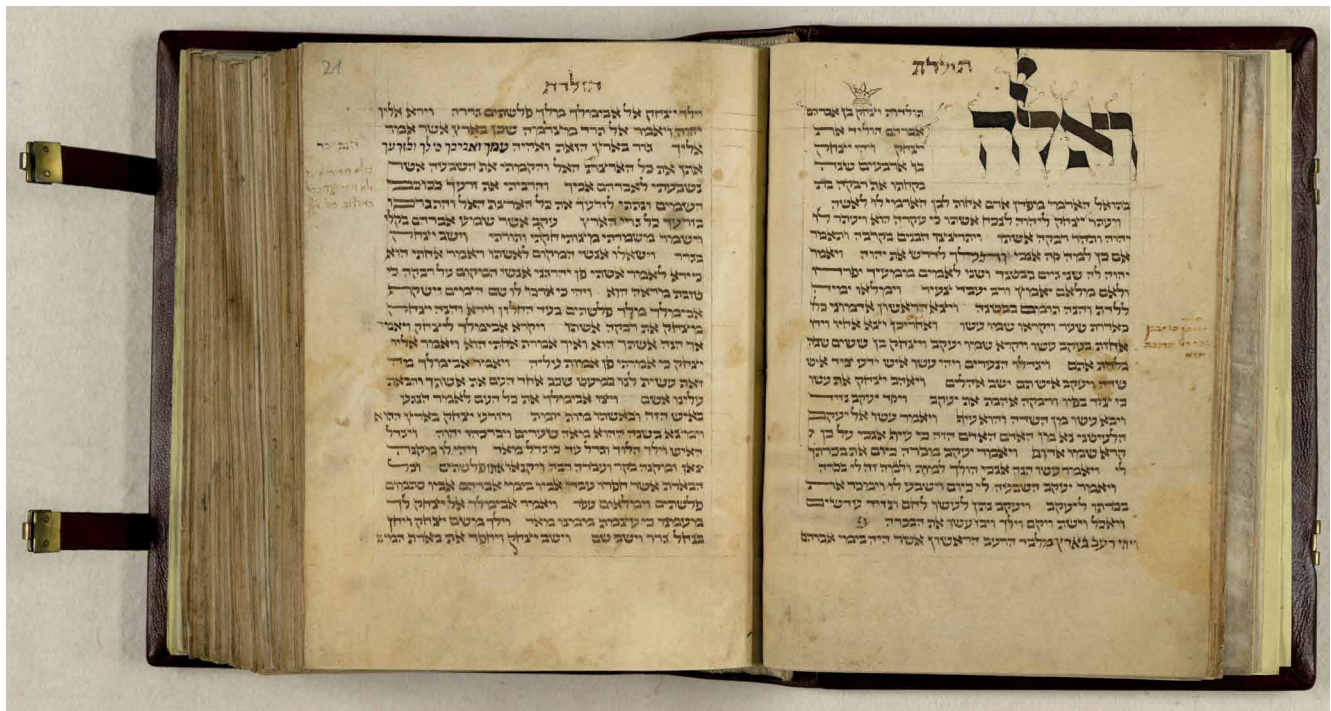 תולדת
ואלה
תולדת יצחק בן אברהם
אברהם הוליד את
יצחק ויהי יצחק
בן ארבעים שנה
בקחתו את רבקה בת
בתואל הארמי מפדן ארם אחות לבן הארמי לו לאשה
ויעתר יצחק ליהוה לנכח אשתו כי עקרה הוא ויעתר לו
יהוה ותהר רבקה אשתו ויתרצצו הבנים בקרבה ותאמר
אם כן למה זה אנכי ותלך לדרש את יהוה ויאמר
יהוה לה שני גיים בבטנך ושני לאמים ממעיך יפרדו
ולאם מלאם יאמץ ורב יעבד צעיר וימלאו ימיה
ללדת והנה תומם בבטנה ויצא הראשון אדמוני כלו
כאדרת שער ויקראו שמו עשו ואחרי כן יצא אחיו וידו
אחזת בעקב עשו ויקרא שמו יעקב ויצחק בן ששים שנה
בלדת אתם ויגדלו הנערים ויהי עשו איש ידע ציד איש
שדה ויעקב איש תם ישב אהלים ויאהב יצחק את עשו
כי ציד בפיו ורבקה אהבת את יעקב ויזד יעקב נזיד
ויבא עשו מן השדה והוא עיף ויאמר עשו אל יעקב
הלעיטני נא מן האדם האדם הזה כי עיף אנכי על כן
קרא שמו אדום ויאמר יעקב מכרה כיום את בכרתך
לי ויאמר עשו הנה אנכי הולך למות ולמה זה לי בכרה
ויאמר יעקב השבעה לי כיום וישבע לו וימכר את
בכרתו ליעקב ויעקב נתן לעשו לחם ונזיד עדשים
ויאכל וישת ויקם וילך ויבז עשו את הבכרה
ויהי רעב בארץ מלבד הרעב הראשון אשר היה בימי אברהם
21
תולדת
וילך יצחק אל אבימלך מלך פלשתים גררה וירא אליו
יהוה ויאמר אל תרד מצרימה שכן בארץ אשר אמר
אליך גור בארץ הזאת ואהיה עמך ואברכך כי לך ולזרעך
אתן את כל הארצת האל והקמתי את השבעה אשר
נשבעתי לאברהם אביך והרביתי את זרעך ככוכבי
השמים ונתתי לזרעך את כל הארצת האל והתברכו
בזרעך כל גויי הארץ עקב אשר שמע אברהם בקלי
וישמר משמרתי מצותי חקתי ותורתי וישב יצחק
בגרר וישאלו אנשי המקום לאשתו ויאמר אחתי הוא
כי ירא לאמר אשתי פן יהרגני אנשי המקום על רבקה כי
טובת מראה הוא ויהי כי ארכו לו שם הימים וישקף
אבימלך מלך פלשתים בעד החלון וירא והנה יצחק
מצחק את רבקה אשתו ויקרא אבימלך ליצחק ויאמר
אך הנה אשתך הוא ואיך אמרת אחתי הוא ויאמר אליו
יצחק כי אמרתי פן אמות עליה ויאמר אבימלך מה
זאת עשית לנו כמעט שכב אחד העם את אשתך והבאת
עלינו אשם ויצו אבימלך את כל העם לאמר הנגע
באיש הזה ובאשתו מות יומת ויזרע יצחק בארץ ההוא
וימצא בשנה ההוא מאה שערים ויברכהו יהוה ויגדל
האיש וילך הלוך וגדל עד כי גדל מאד ויהי לו מקנה
צאן ומקנה בקר ועבדה רבה ויקנאו אתו פלשתים וכל
הבארת אשר חפרו עבדי אביו בימי אברהם אביו סתמום
פלשתים וימלאום עפר ויאמר אבימלך אל יצחק לך
מעמנו כי עצמת ממנו מאד וילך משם יצחק ויחן
בנחל גרר וישב שם וישב יצחק ויחפר את בארת המים